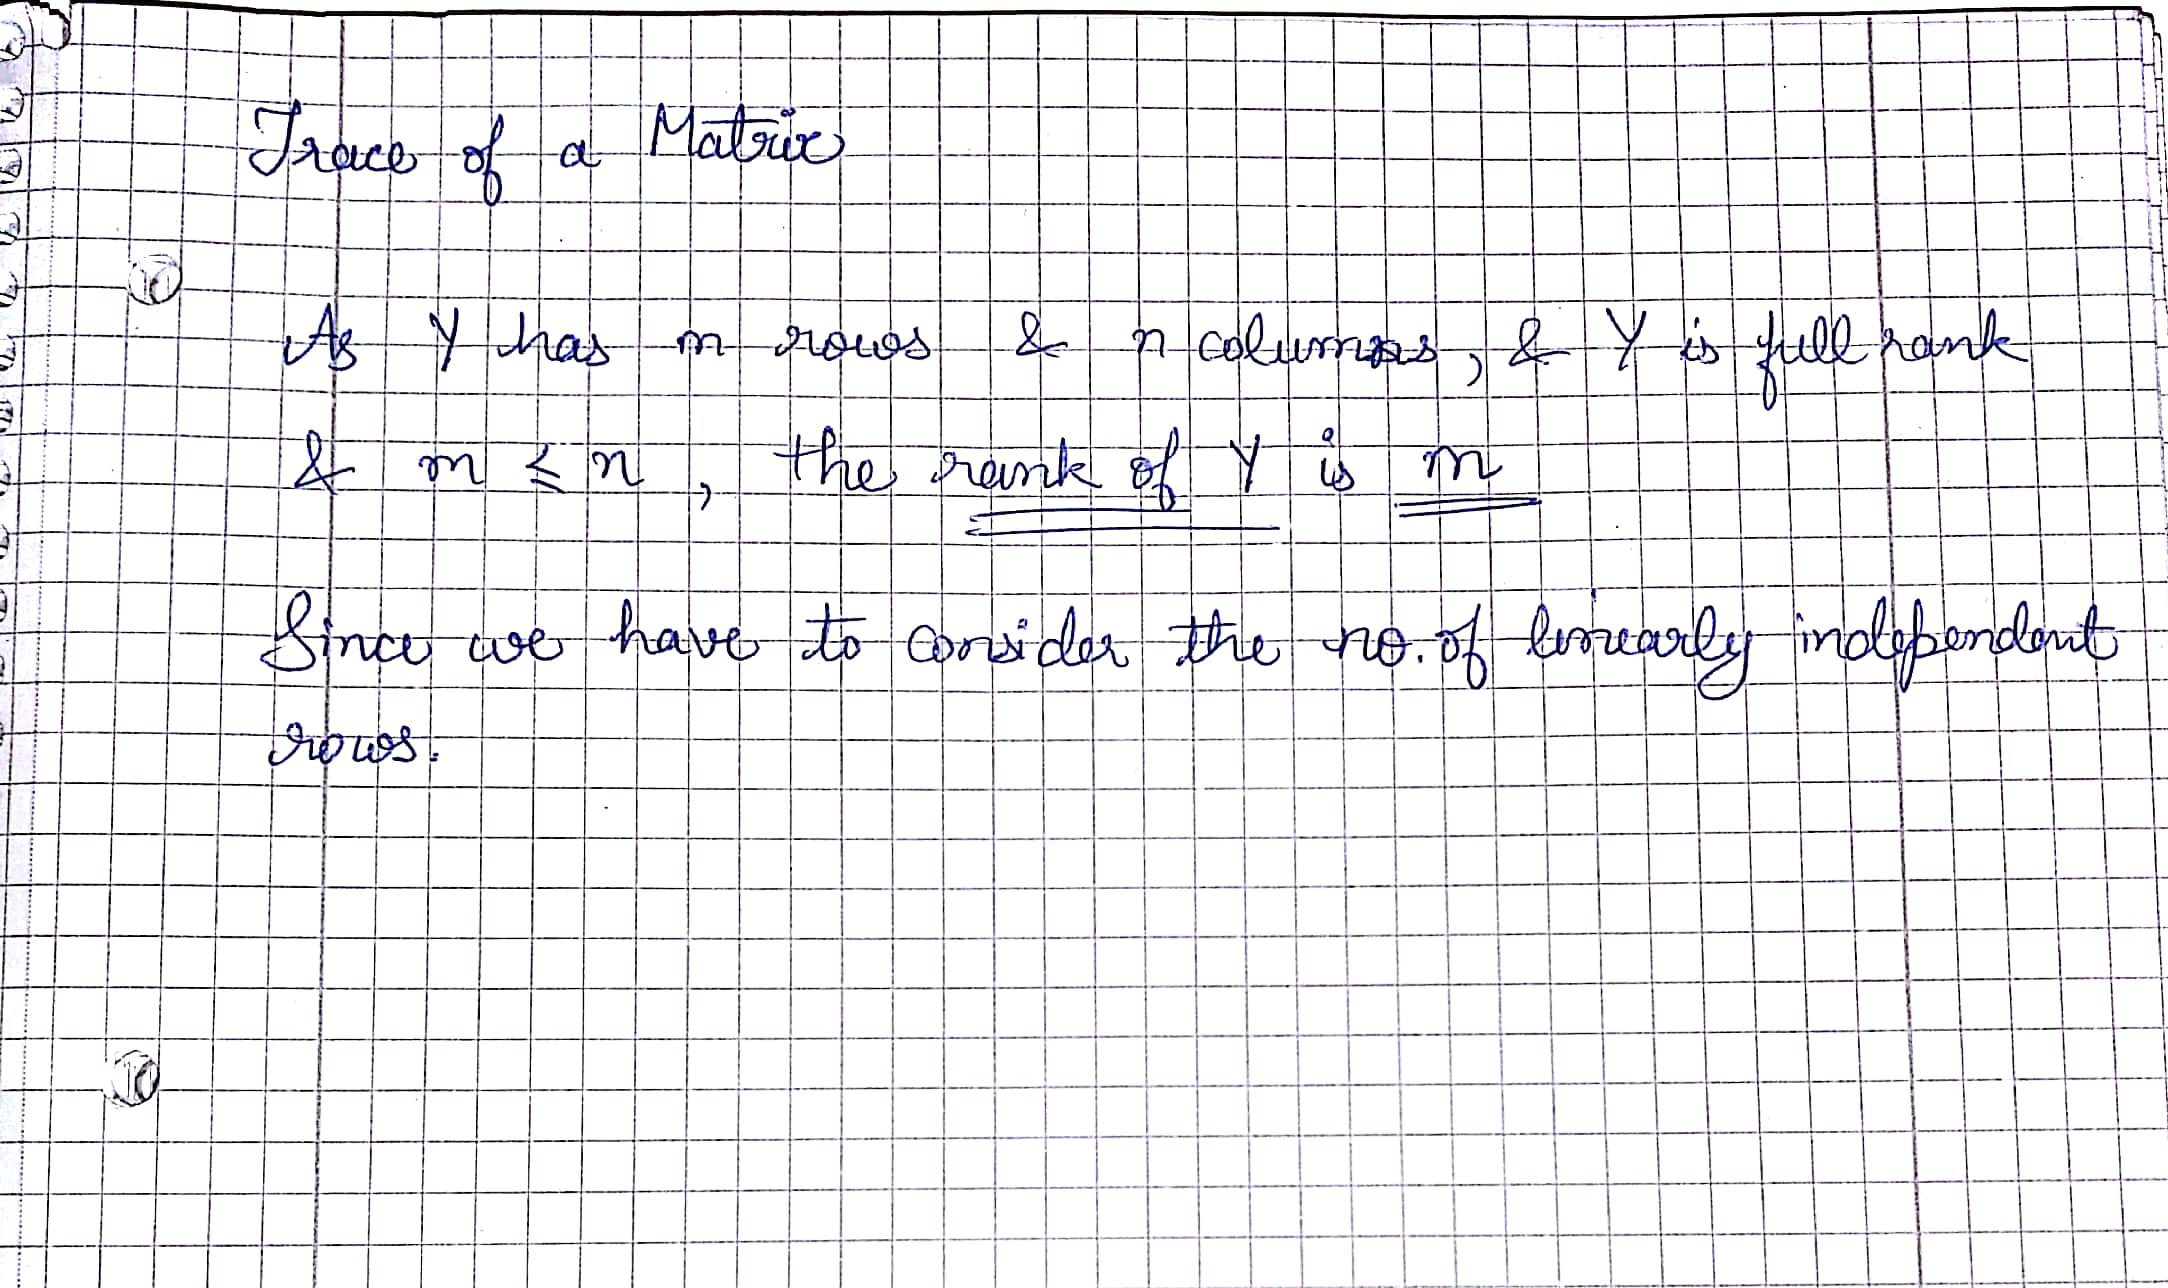 Trace of a Matrix
As Y has m rows & n columns, & Y is full rank
& m ≤ n, the rank of Y is m
Since we have to consider the no. of linearly independent
rows.